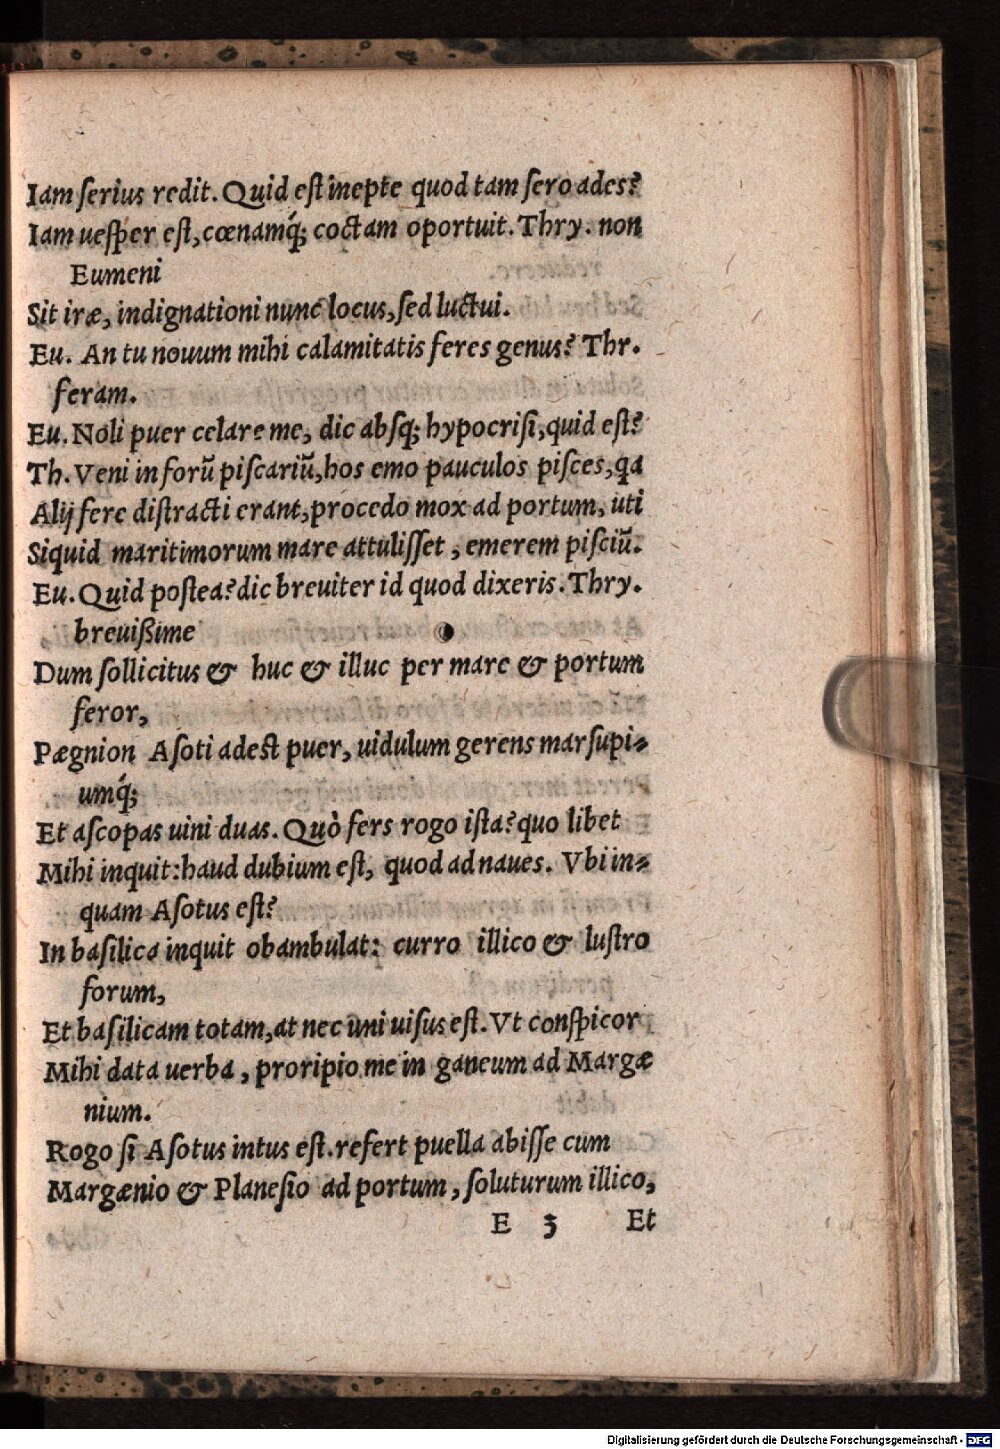 Iam ſerius redit. Quid eſt inepte quod tam ſero ades?
Iam ueſper eſt, cœnamq́; coctam oportuit. Thry. non
Eumeni
Sit iræ, indignationi nunc locus, ſed luctui.
Eu. An tu nouum mihi calamitatis feres genus? Thr.
feram.
Eu. Noli puer celare me, dic abſq; hypocriſi, quid eſt?
Th. Veni in forū piſcariū, hos emo pauculos piſces, qa
Alij fere diſtracti erant, procedo mox ad portum, uti
Siquid maritimorum mare attuliſſet, emerem piſciū.
Eu. Quid poſtea? dic breuiter id quod dixeris. Thry.
breuißime
Dum ſollicitus & huc & illuc per mare & portum
feror,
Pægnion Aſoti adest puer, uidulum gerens marſupi⸗
umq́;
Et aſcopas uini duas. Quò fers rogo iſta? quo libet
Mihi inquit: haud dubium eſt, quod ad naues. Vbi in⸗
quam Aſotus eſt?
In baſilica inquit obambulat: curro illico & luſtro
forum,
Et baſilicam totam, at nec uni uiſus eſt. Vt conſpicor
Mihi data uerba, proripio me in ganeum ad Margæ
nium.
Rogo ſi Aſotus intus eſt. refert puella abiſſe cum
Margænio & Planeſio ad portum, ſoluturum illico,
E 3 Et
Digitalisierung gefördert durch die Deutsche Forschungsgemeinschaft - DFG